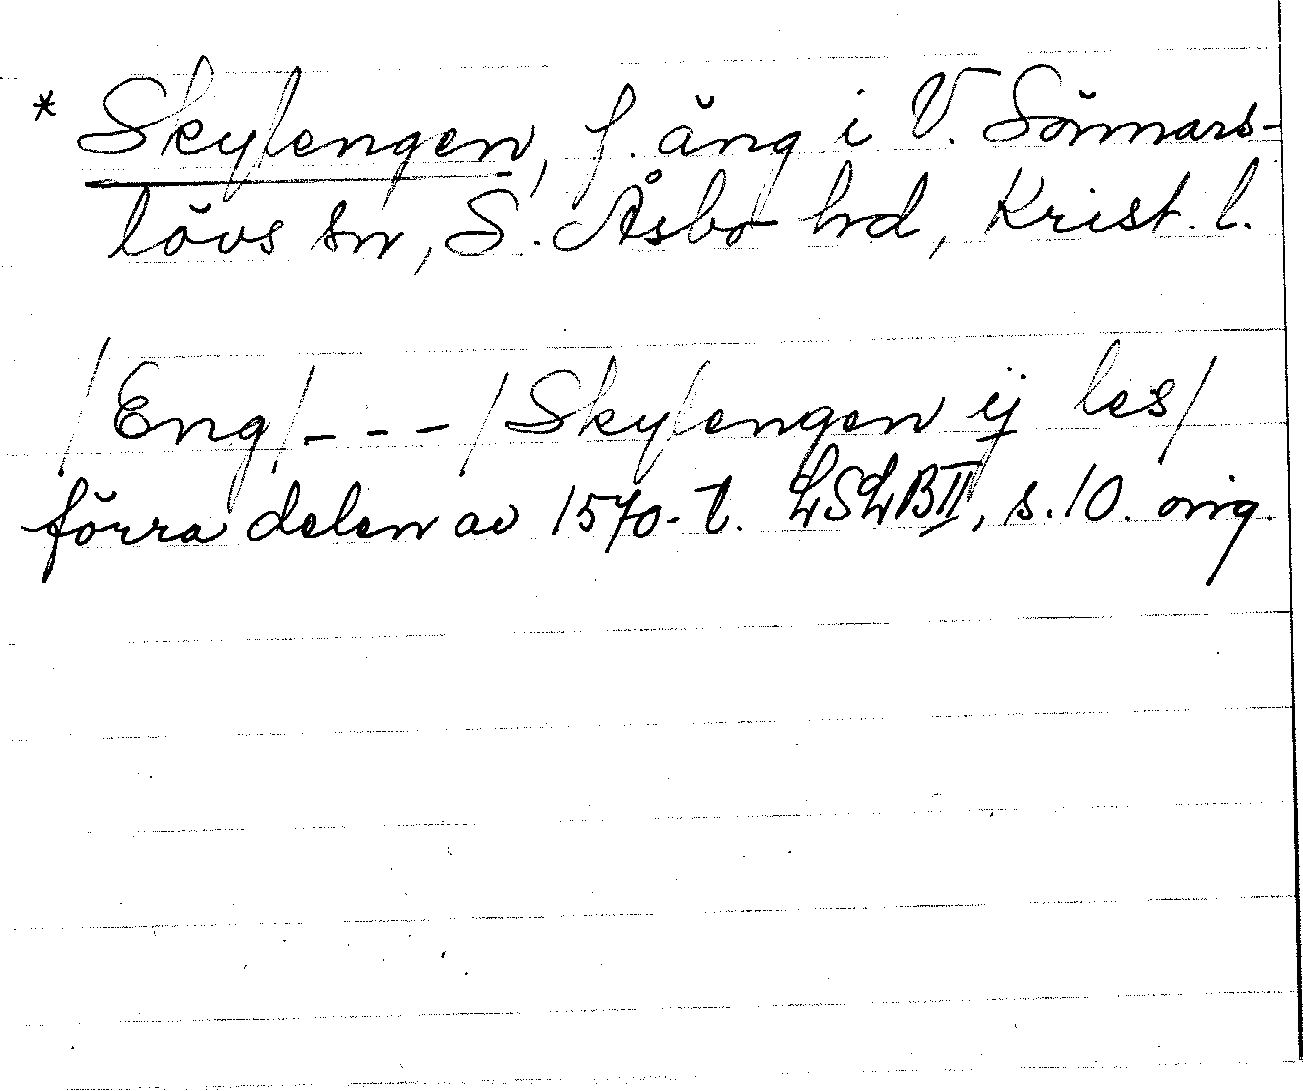 * Skylengen, f. äng i V. Sönnars-
lövs sn, S. Åsbo hd, Krist. l.
/Eng/ - - - /Skylengen ij les/
förra delen av 1570-t. LSLB II, s. 10. orig.